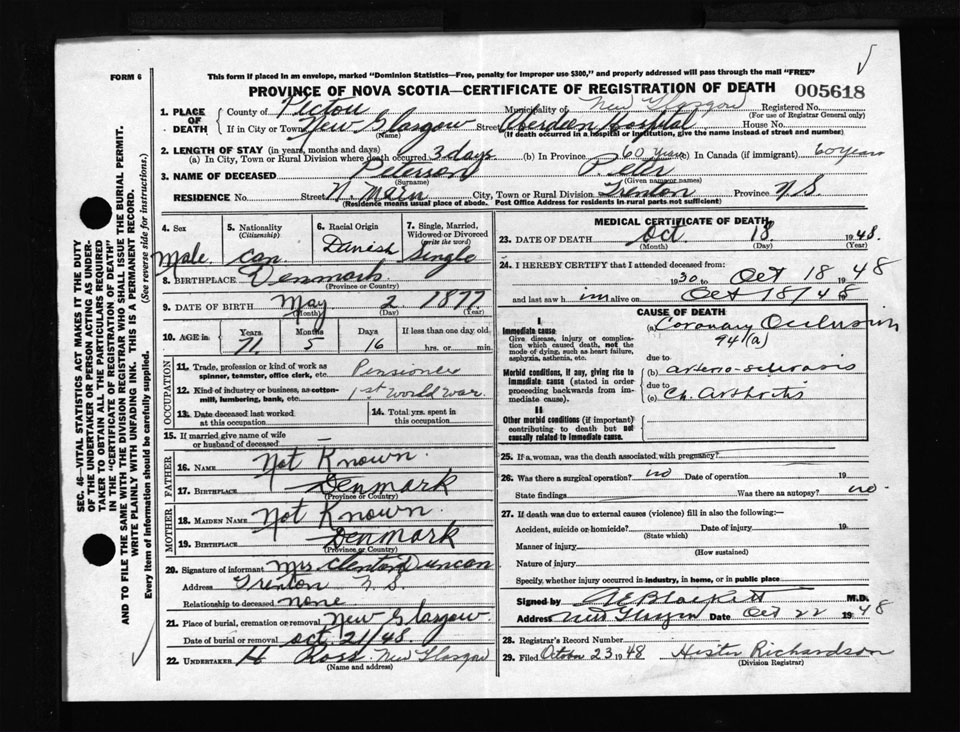 FORM 6
This form if placed in an envelope, marked "Dominion Statistics—Free, penalty for improper use $300," and properly addressed will pass through the mail "FREE"
PROVINCE OF NOVA SCOTIA—CERTIFICATE OF REGISTRATION OF DEATH 005618
1. PLACE OF DEATH
County of Pictou Municipality of New Glasgow Registered No.
(For use of Registrar General only)
If in City or Town New Glasgow Street Aberdeen Hospital House No.
(Name) (If death occurred in a hospital or institution, give the name instead of street and number)
2. LENGTH OF STAY (in years, months and days)
(a) In City, Town or Rural Division where death occurred 3 days (b) In Province 60 years (c) In Canada (if immigrant) 60 years
3. NAME OF DECEASED Peterson Peter
(Surname) (Given name or names)
RESIDENCE No. Street N. Main City, Town or Rural Division Trenton Province N.S.
(Residence means usual place of abode. Post Office Address for residents in rural parts not sufficient)
4. Sex Male
5. Nationality (Citizenship) Can.
6. Racial Origin Danish
7. Single, Married, Widowed or Divorced (write the word) Single
8. BIRTHPLACE Denmark
(Province or Country)
9. DATE OF BIRTH May 2 1877
(Month) (Day) (Year)
10. AGE in Years Months Days If less than one day old
71 5 16 hrs. or min.
OCCUPATION
11. Trade, profession or kind of work as spinner, teamster, office clerk, etc. Pensioner
12. Kind of industry or business, as cotton-mill, lumbering, bank, etc. 1st World War.
13. Date deceased last worked at this occupation
14. Total yrs. spent in this occupation
15. If married give name of wife or husband of deceased —
FATHER
16. NAME Not Known
17. BIRTHPLACE Denmark
(Province or Country)
MOTHER
18. MAIDEN NAME Not Known.
19. BIRTHPLACE Denmark
(Province or Country)
20. Signature of informant Mrs. Clenton Duncan
Address Trenton N.S.
Relationship to deceased none
21. Place of burial, cremation or removal New Glasgow
Date of burial or removal Oct 21/48.
22. UNDERTAKER H Ross. New Glasgow
(Name and address)
MEDICAL CERTIFICATE OF DEATH
23. DATE OF DEATH Oct. 18 1948.
(Month) (Day) (Year)
24. I HEREBY CERTIFY that I attended deceased from:
1930 to Oct 18 1948
and last saw him alive on Oct 18/48
CAUSE OF DEATH
I.
Immediate cause
Give disease, injury or complication which caused death, not the mode of dying, such as heart failure, asphyxia, asthenia, etc.
(a) Coronary Occlusion
94(a)
due to
Morbid conditions, if any, giving rise to immediate cause (stated in order proceeding backwards from immediate cause).
(b) arterio-sclerosis
due to
(c) Ch. Arthritis
II
Other morbid conditions (if important) contributing to death but not causally related to immediate cause.
25. If a woman, was the death associated with pregnancy?
26. Was there a surgical operation? no Date of operation 19
State findings Was there an autopsy? no.
27. If death was due to external causes (violence) fill in also the following:—
Accident, suicide or homicide? Date of injury 19
(State which)
Manner of injury
(How sustained)
Nature of injury
Specify, whether injury occurred in industry, in home, or in public place
Signed by A E Blackett M.D.
Address New Glasgow Date Oct 22 1948
28. Registrar's Record Number
29. Filed October 23 1948 Hester Richardson
(Division Registrar)
SEC. 46—VITAL STATISTICS ACT MAKES IT THE DUTY
OF THE UNDERTAKER OR PERSON ACTING AS UNDER-
TAKER TO OBTAIN ALL THE PARTICULARS REQUIRED
IN THE "CERTIFICATE OF REGISTRATION OF DEATH"
AND TO FILE THE SAME WITH THE DIVISION REGISTRAR WHO SHALL ISSUE THE BURIAL PERMIT.
WRITE PLAINLY WITH UNFADING INK. THIS IS A PERMANENT RECORD.
Every item of information should be carefully supplied. (See reverse side for instructions.)